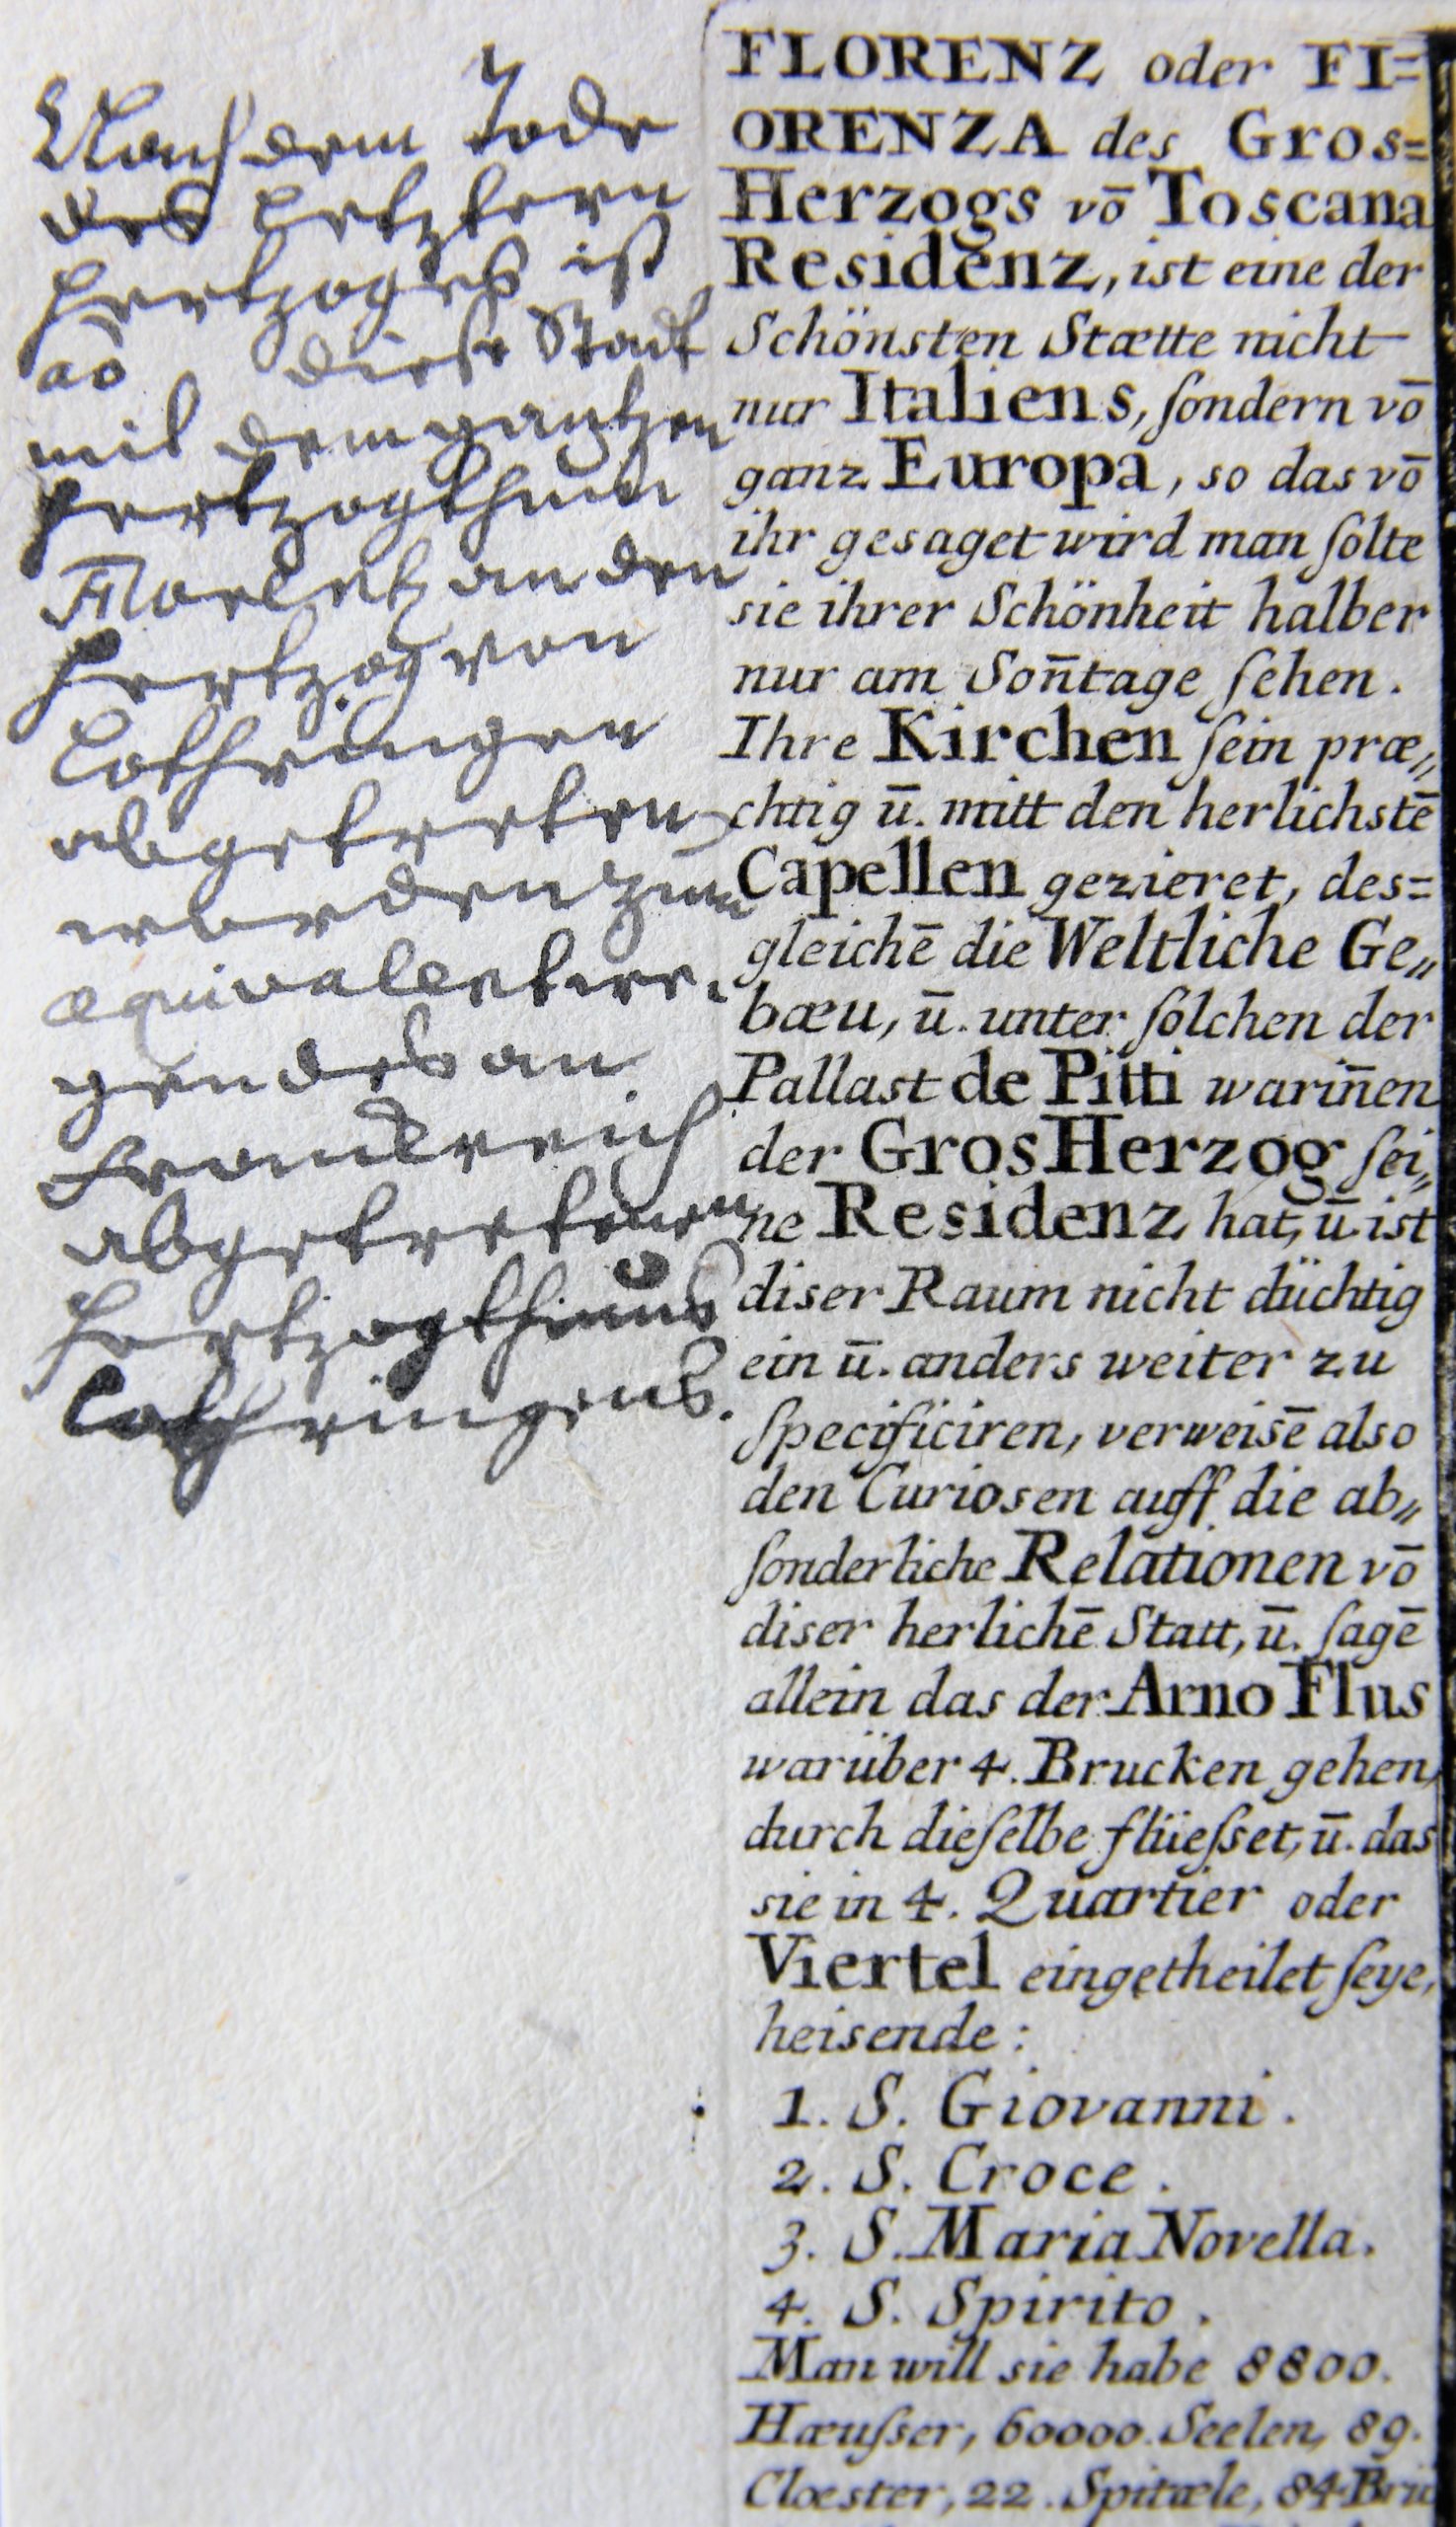 Nach dem Tode
des Letztern
Hertzoges ist
aō diese Stadt
mit dem gantzen
Hertzogthum
Florentz an den
Hertzog von
Lothringen
abgetretten
worden zum
æquivalent
gen des an
Franckreich
abgetretenen
Hertzogthums
Lothringens.
FLORENZ oder FI=
ORENZA des Gros=
Herzogs vō Toscana
Residenz, ist eine der
Schönsten Stætte nicht
nur Italiens, ſondern vō
ganz Europa, so das vō
ihr gesaget wird man ſolte
sie ihrer Schönheit halber
nur am Son̄tage ſehen.
Ihre Kirchen ſein præ„
chtig ū. mitt den herlichstē
Capellen gezieret, des=
gleichē die Weltliche Ge„
bæu, ū. unter ſolchen der
Pallast de Pitti warin̄en
der GrosHerzog ſei„
ne Residenz hat, ū. ist
diser Raum nicht düchtig
ein ū. anders weiter zu
ſpecificiren, verweisē also
den Curiosen auff die ab„
ſonderliche Relationen vō
diser herlichē Statt, ū. ſagē
allein das der Arno Flus
warüber 4. Brucken gehen,
durch dieſelbe flüeſset, ū. das
sie in 4. Quartier oder
Viertel eingetheilet ſeye,
heisende:
1. S. Giovanni.
2. S. Croce.
3. S. Maria Novella.
4. S. Spirito.
Man will sie habe 8800.
Hæuſser, 60000. Seelen, 89.
Clœster, 22. Spitæle, 84